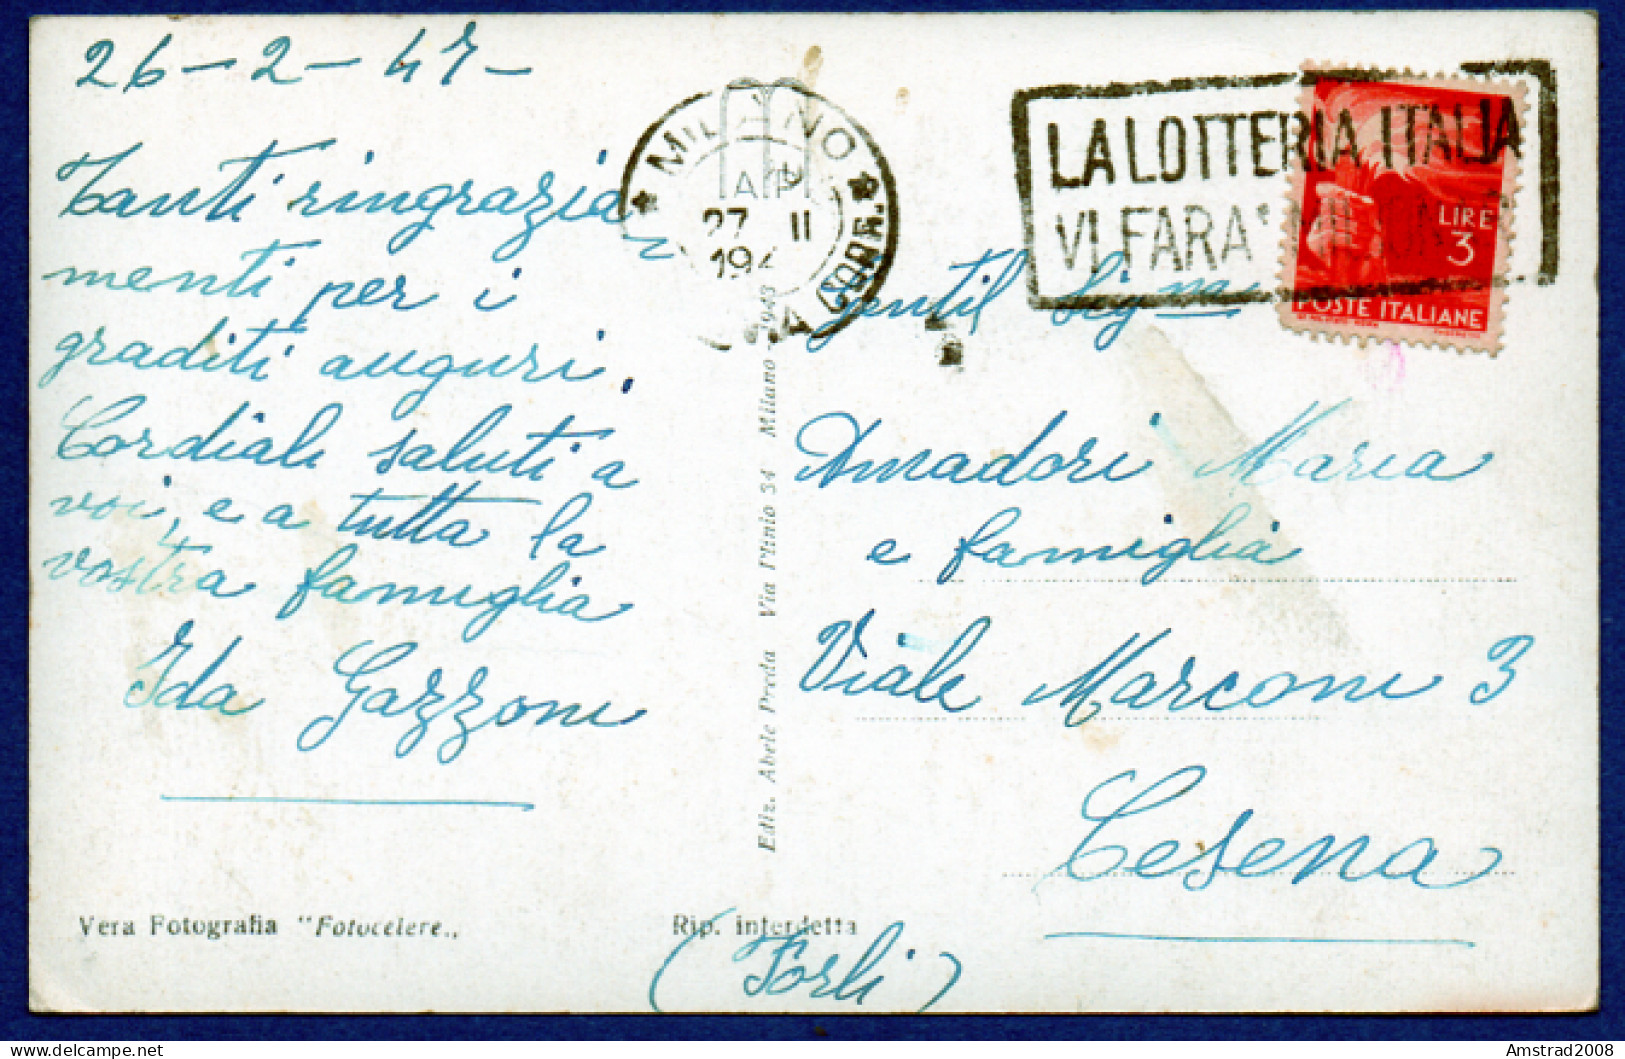 26-2-47-
Tanti ringrazia
menti per i
graditi auguri.
Cordiali saluti a
voi, e a tutta la
vostra famiglia
Ida Gazzoni
Vera Fotografia "Fotocelere„
Rip. interdetta
Ediz. Abele Preda Via Plinio 34 Milano - 1943
* MILANO *
27 II
194
CORR.
LA LOTTERIA ITALIA
VI FARA'
LIRE
3
POSTE ITALIANE
Gentil Signa
Amadori Maria
e famiglia
Viale Marconi 3
Cesena
(Forlì)
Amstrad2008